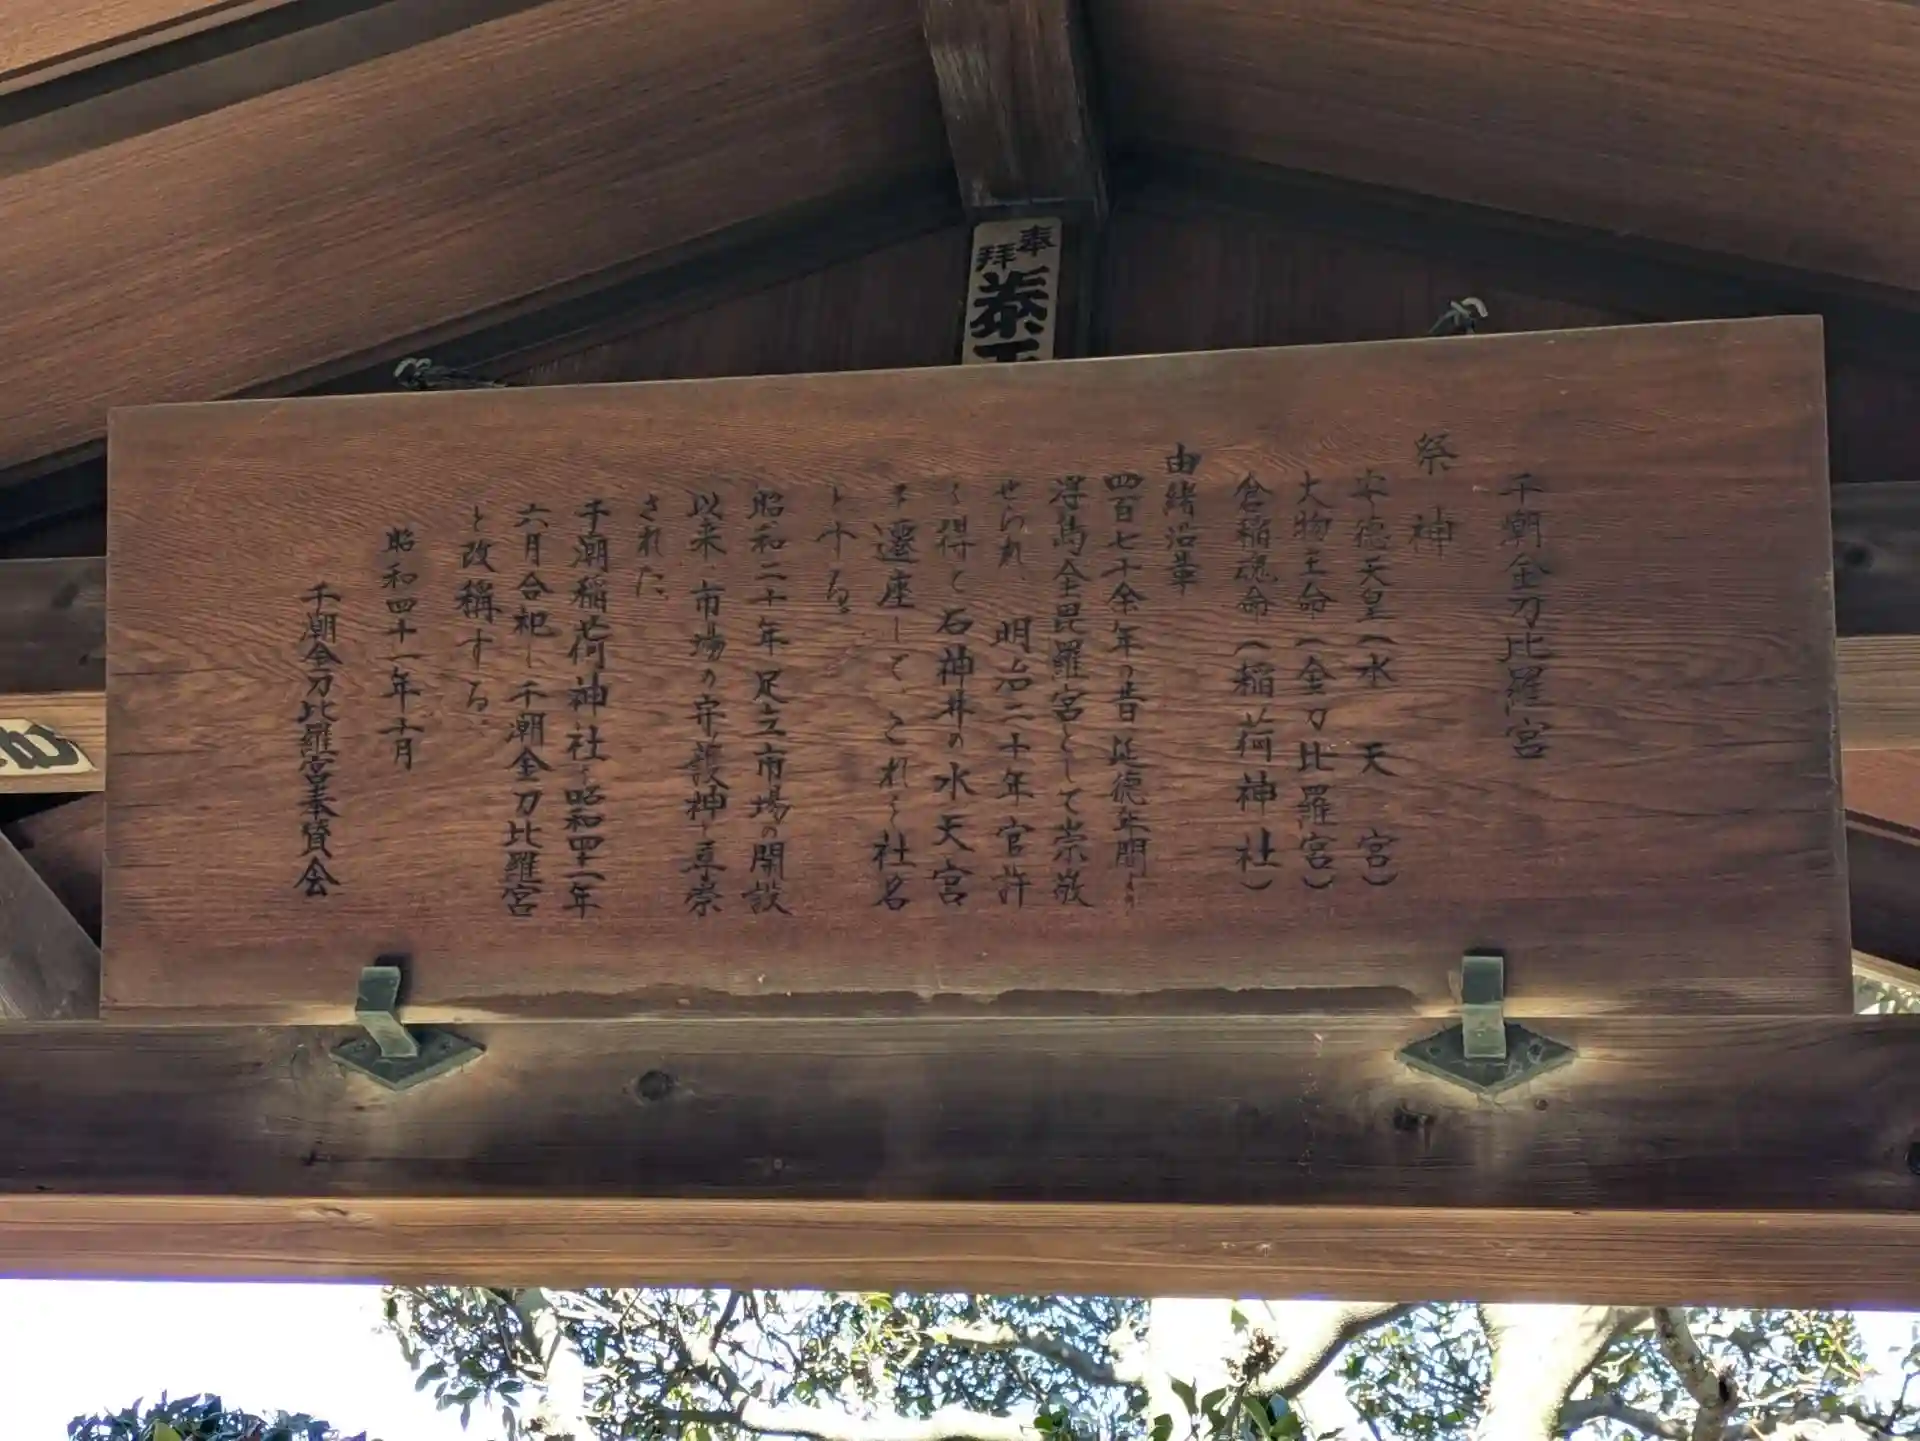 奉拝
千潮金刀比羅宮
祭神
安徳天皇(水天宮)
大物主命(金刀比羅宮)
倉稲魂命(稲荷神社)
由緒沿革
四百七十余年の昔延徳年間より
浮島金毘羅宮として崇敬
せられ、明治二十年官許
を得て石神井の水天宮
を遷座して、これを社名
とする。
昭和二十年足立市場の開設
以来、市場の守護神と尊崇
された。
千潮稲荷神社を昭和四十一年
六月合祀し千潮金刀比羅宮
と改稱する。
昭和四十一年十月
千潮金刀比羅宮奉賛会